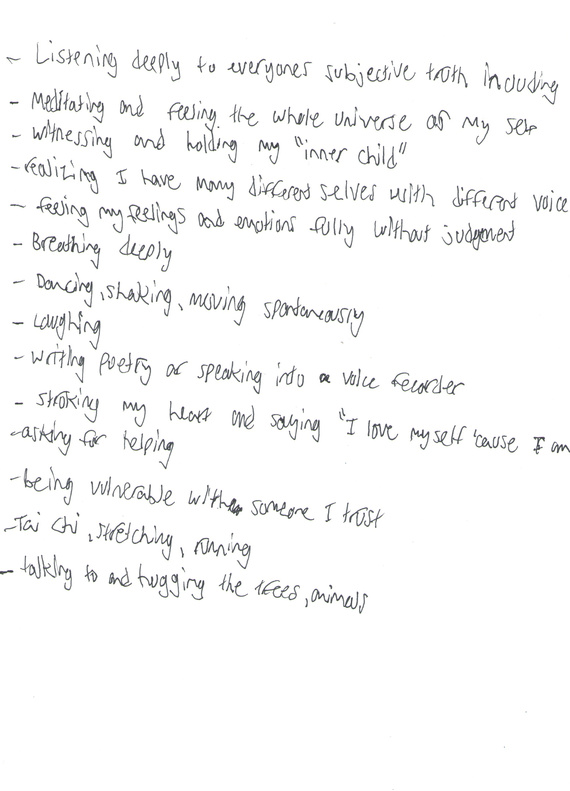 - Listening deeply to everyones subjective truth including
- Meditating and feeling the whole universe as my self
- witnessing and holding my "inner child"
- realizing I have many different selves with different voice
- feeling my feelings and emotions fully without judgement
- Breathing deeply
- Dancing, shaking, moving spontaneously
- Laughing
- writing poetry or speaking into a voice recorder
- stroking my heart and saying "I love myself 'cause I am
- asking for helping
- being vulnerable with someone I trust
- Tai Chi, stretching, running
- talking to and hugging the trees, animals